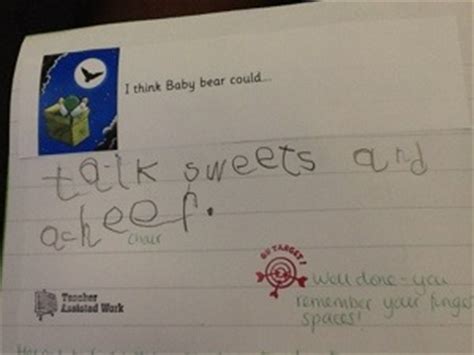 I think Baby bear could...
talk sweets and
acheef.
chair
ON TARGET!
Well done - you
remember your finger
spaces!
Teacher
Assisted Work